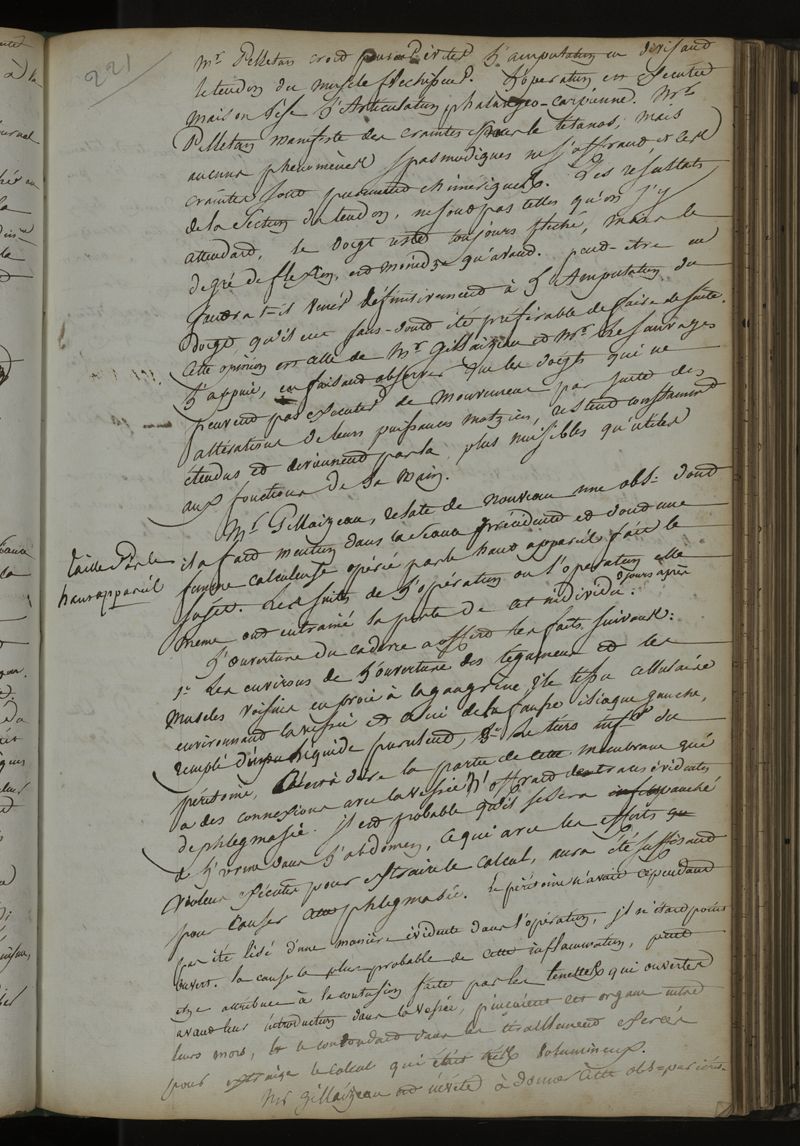 221
Mr Pelletan croit pouvoir éviter l'amputation en divisant
le tendon du muscle fléchisseur. L'opération est exécutée
mais on lèse l'Articulation phalango-carpienne. Mr
Pelletan manifeste des craintes pour le tétanos, mais
aucuns phénomènes spasmodiques ne s'offrent et ces
craintes sont purement chimériques. Les résultats
de la section du tendon, ne sont pas telles qu'on s'y
attendait, le doigt reste toujours fléchi, mais le
degré de flexion, est moindre qu'avant. peut-être en
faudra t-il venir définitivement à l'Amputation du
doigt qu'il eut sans-doute été préférable de faire de suite.
Cette opinion est celle de Mr Gillaizeau et Mr Desauvages
l'appuie, en faisant observer que les doigts qui ne
peuvent pas exécuter de mouvemens par suite des
altérations de leurs puissances motrices, restent constamment
étendus et deviennent par là, plus nuisibles qu'utiles
aux fonctions de la main.
Mr Gillaizeau, relate de nouveau une obs= dont
Taille par le
haut appareil
il a fait mention dans la séance précédente et dont une
femme calculeuse opérée par le haut appareil fait le
sujet. Les suites de l'opération ou l'opération elle
même ont entrainé la perte de cet individu. jours après
L'ouverture du cadavre a offert les faits suivans:
1° Les environs de l'ouverture des tégumens et les
muscles voisins en proie à la gangrène, le tissu cellulaire
environnant la vessie et celui de la fosse iliaque gauche,
remplé d'un liquide purulent, Le tiers infr du
péritoine, c'est à dire la partie de cette membrane qui
a des connexions avec la vessie offrait des traces évidentes
de phlegmasie. il est probable qu'il se sera épanché
de l'urine dans l'abdomen, ce qui avec les efforts
violens exécutés pour extraire le calcul, aura été suffisant
pour causer phlegmasie. Le péritoine n'avait cependant
pas été lésé d'une manière évidente dans l'opération, il n'était point
ouvert. la cause la plus probable de cette inflammation, peut
etre attribuée à la contusion faite par les tenettes qui ouvertes
avant leur introduction dans la vessie, pinçaient cet organe entre
leurs mors, le contondait dans les tiraillemens exercés
pour extraire le calcul qui était très volumineux.
Mr Gillaizeau est invité à donner cette obs= par écrit.